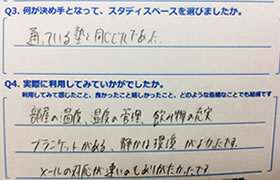 Q3. 何が決め手となって、スタディスペースを選びましたか。
通っている塾と同じビルであった。
Q4. 実際に利用してみていかがでしたか。
利用してみて感じたこと、良かったこと嬉しかったこと、どのような些細なことでも結構です
部屋の温度、湿度の管理 飲み物の充実
ブランケットがある、静かな環境 がよかったです。
メールの対応が速いのもありがたかったです